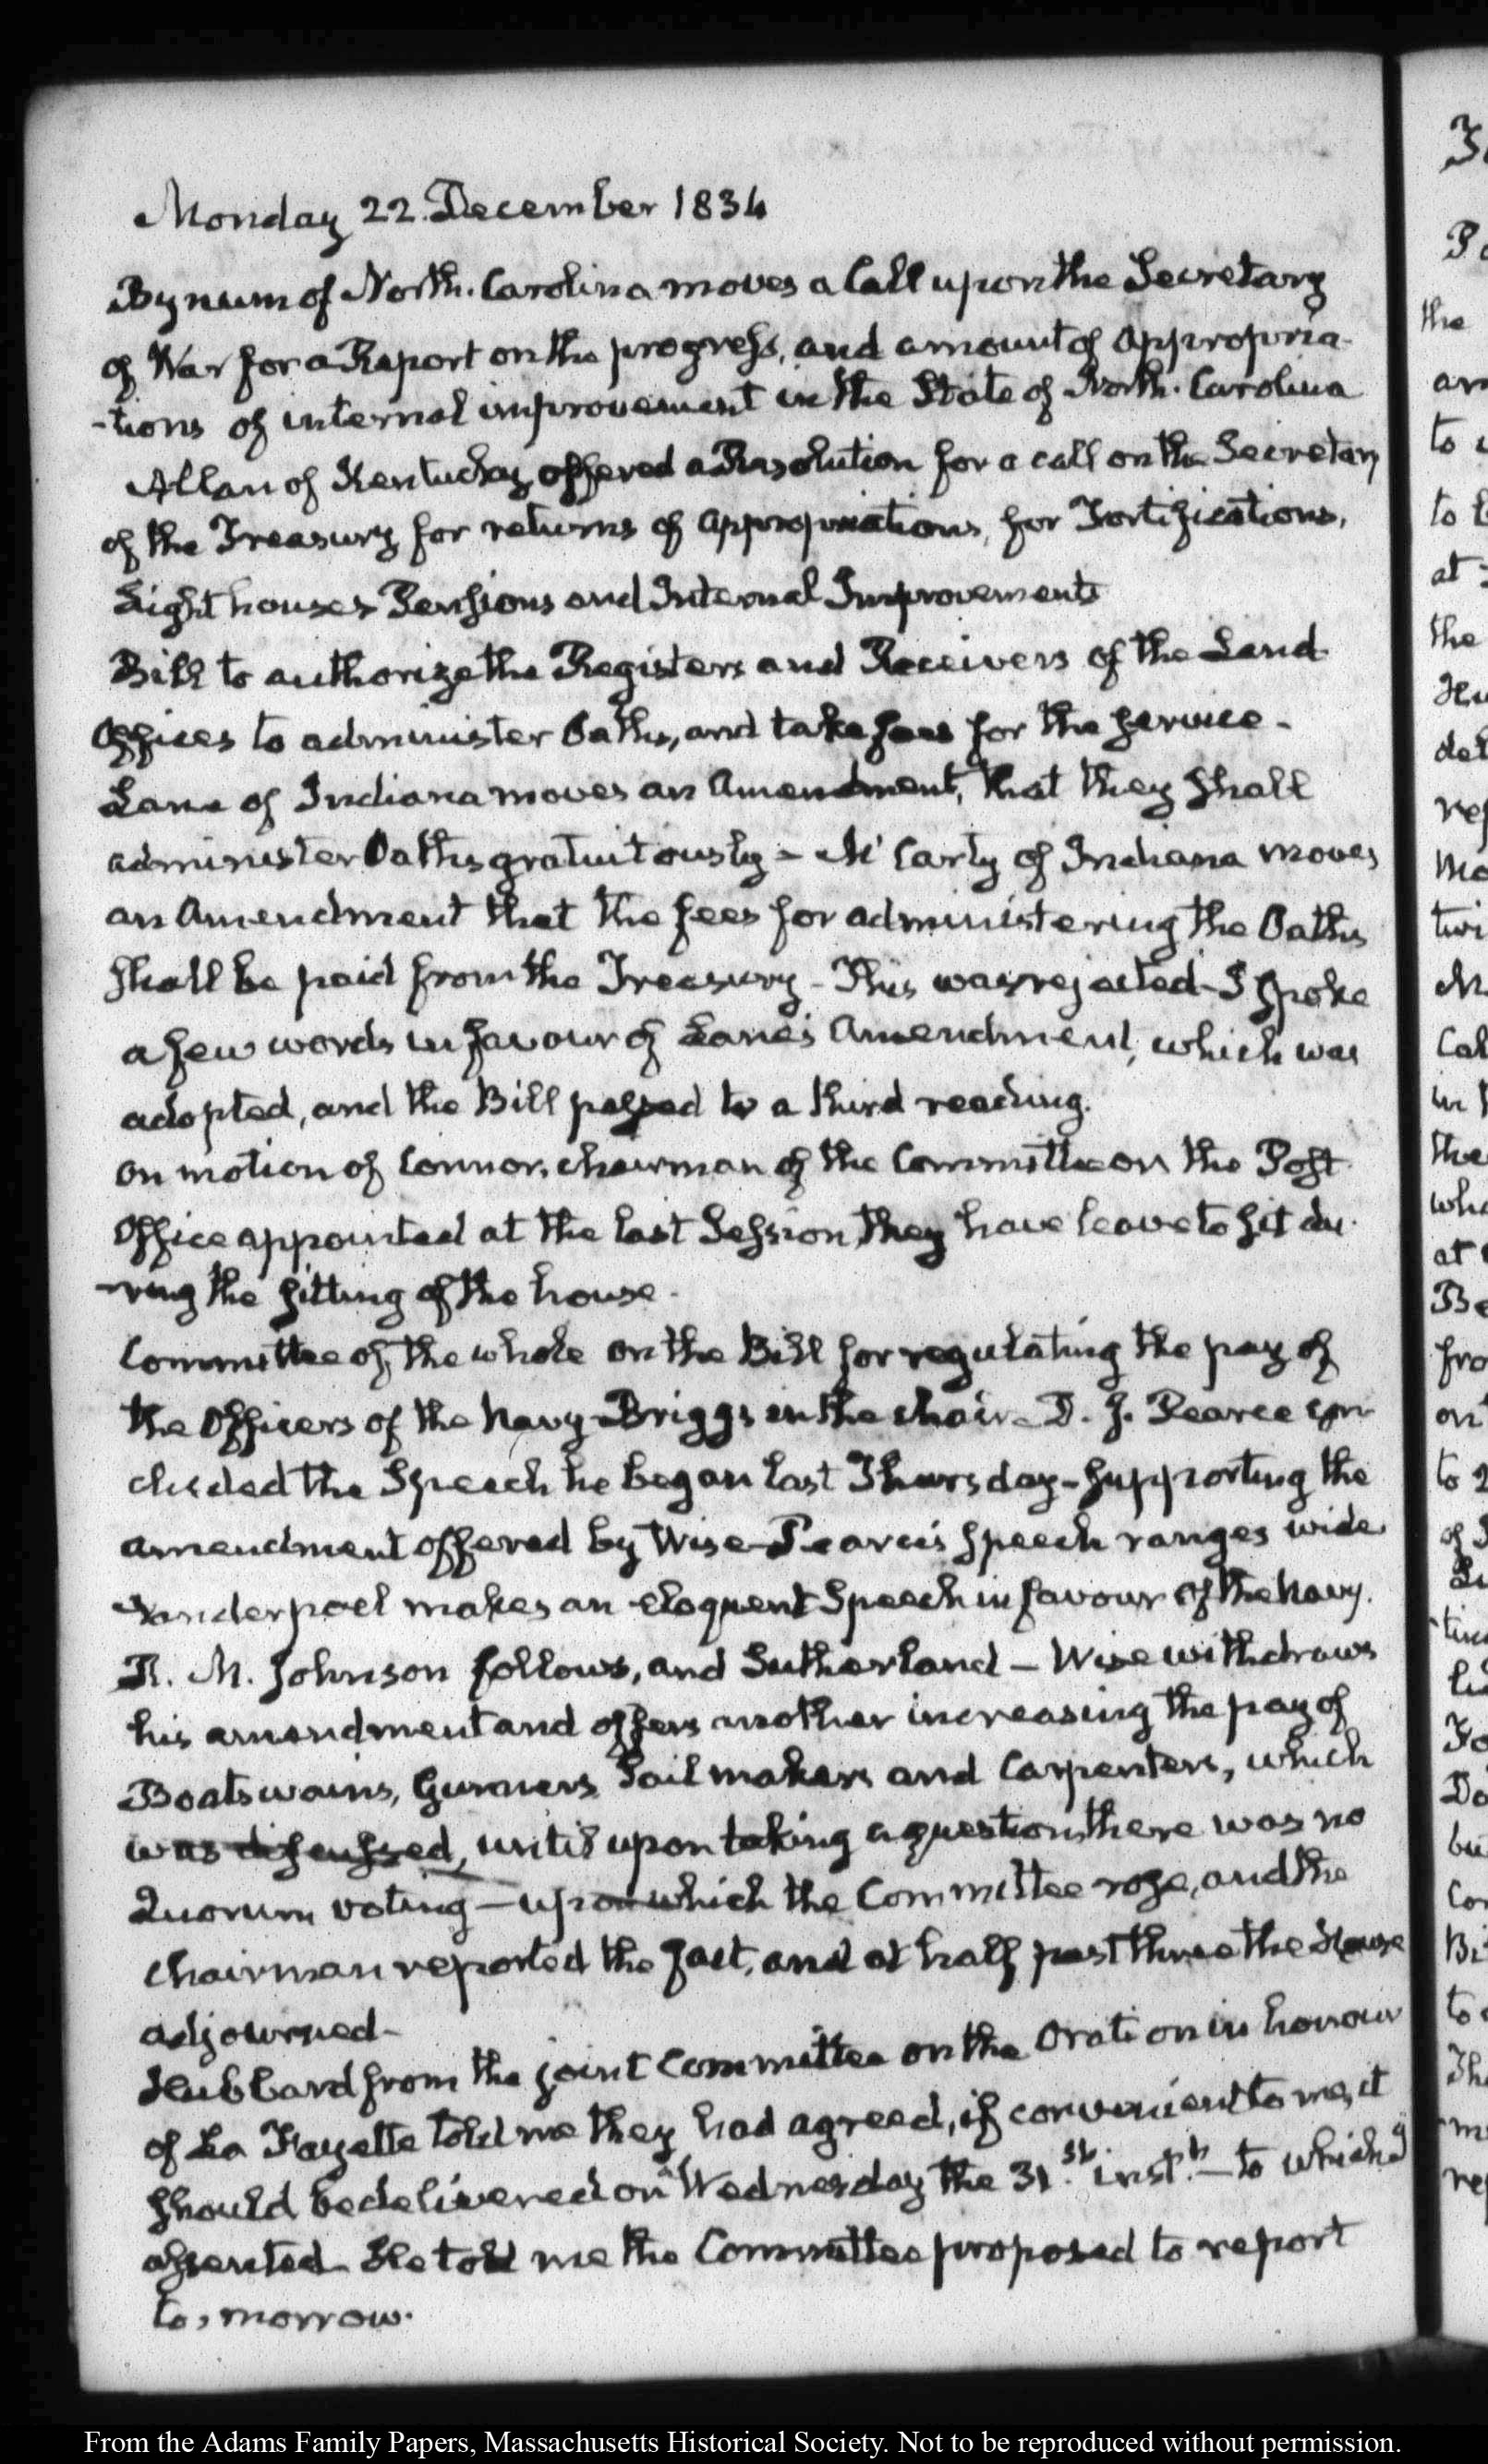 Monday 22. December 1834
Bynum of North. Carolina moves a Call upon the Secretary
of War for a Report on the progress, and amount of appropria-
-tions of internal improvement in the State of North. Carolina
Allan of Kentucky offered a Resolution for a call on the Secretary
of the Treasury for returns of appropriations, for Fortifications,
Light houses Pensions and Internal Improvements
Bill to authorize the Registers and Receivers of the Land
Offices to administer Oaths, and take fees for the service -
Lane of Indiana moves an Amendment, that they shall
administer Oaths gratuitously - Mc Carty of Indiana moves
an Amendment that the fees for administering the Oaths
shall be paid from the Treasury - This was rejected - I spoke
a few words in favour of Lane's Amendment, which was
adopted, and the Bill passed to a third reading.
On motion of Connor, chairman of the Committee on the Post
Office appointed at the last Session, they have leave to sit du-
-ring the sitting of the house -
Committee of the whole on the Bill for regulating the pay of
the Officers of the Navy - Briggs in the chair - D. J. Pearce con
cluded the Speech he began last Thursday - supporting the
amendment offered by Wise - Pearce's speech ranges wide
Vanderpoel makes an eloquent Speech in favour of the Navy.
R. M. Johnson follows, and Sutherland - Wise withdraws
his amendment and offers another increasing the pay of
Boatswains, Gunners, Sailmakers and Carpenters, which
was discussed, until upon taking a question there was no
Quorum voting - upon which the Committee rose, and the
chairman reported the fact, and at half past three the House
adjourned -
Hubbard from the joint Committee on the Oration in honour
of La Fayette told me they had agreed, if convenient to me, it
should be delivered on Wednesday the 31.st inst.t - to which I
assented - He told me the Committee proposed to report
to, morrow.
3
P
the
to
to
at
the
del
Mo
twi
M
Cal
in
the
who
at
Be
fro
on
to 2
of
Fo
Do
bu
Cor
Bi
to
Th
re
From the Adams Family Papers, Massachusetts Historical Society. Not to be reproduced without permission.